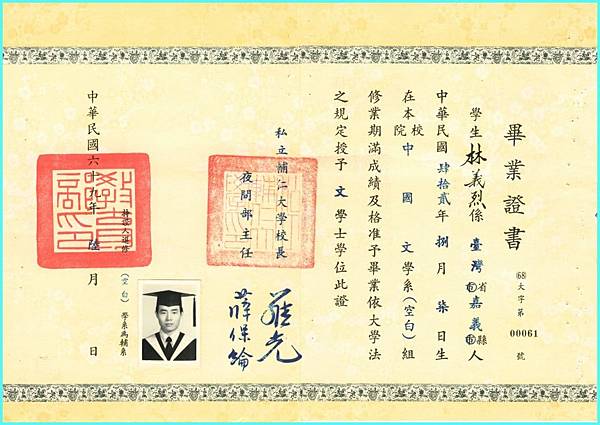 畢業證書
(68)大字第00061號
學生林義烈係臺灣省市嘉義縣市人
中華民國肆拾貳年捌月柒日生
在本校院中國文學系(空白)組
修業期滿成績及格准予畢業依大學法
之規定授予文學士學位此證
私立輔仁大學校長
羅光
夜間部主任
薛保綸
中華民國六十九年陸月 日
(空白)學系為輔系
教育部印